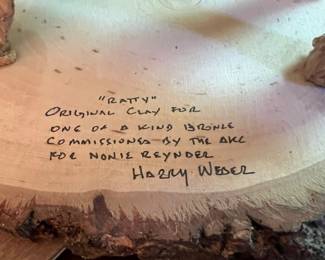 "RATTY"
ORIGINAL CLAY FOR
ONE OF A KIND BRONZE
COMMISSIONED BY THE AKC
FOR NONIE REYNDER
HARRY WEBER